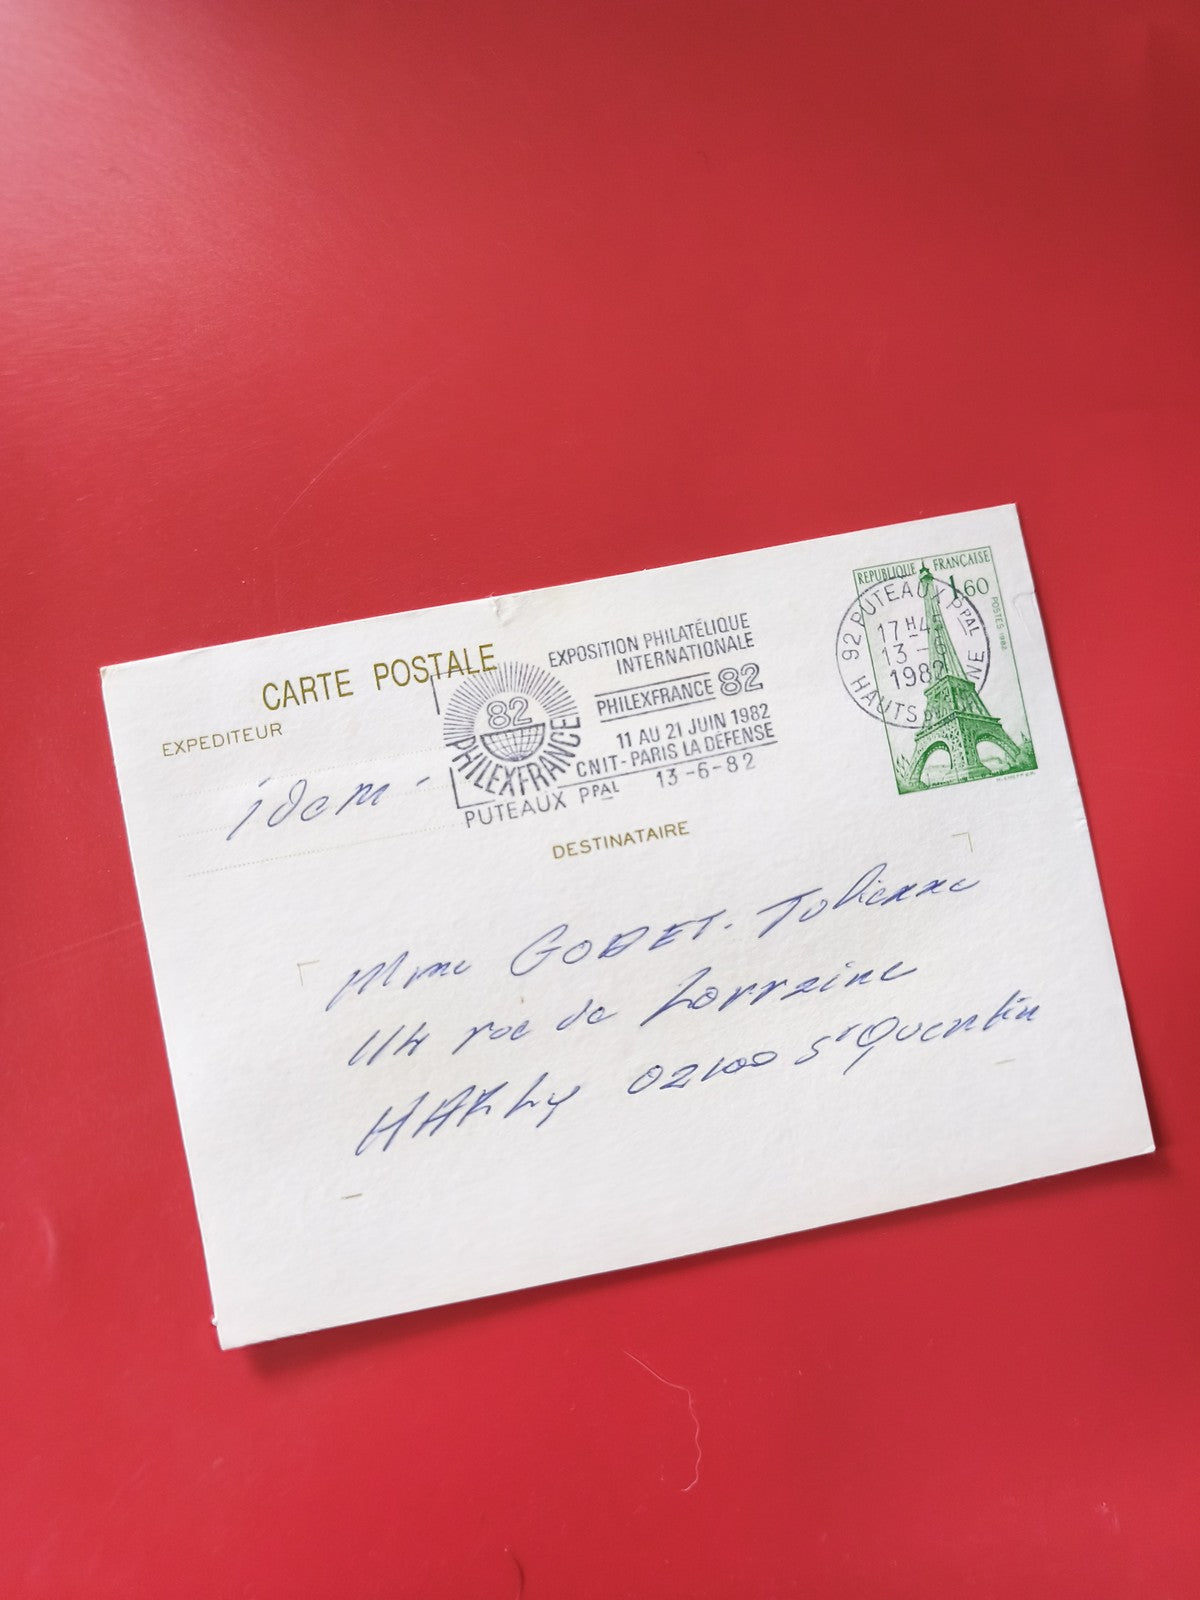 CARTE POSTALE
EXPEDITEUR
idem -
82
PHILEXFRANCE
EXPOSITION PHILATÉLIQUE
INTERNATIONALE
PHILEXFRANCE 82
11 AU 21 JUIN 1982
CNIT - PARIS LA DÉFENSE
PUTEAUX PPAL 13-6-82
REPUBLIQUE FRANÇAISE
1,60
POSTES 1982
92 PUTEAUX PPAL
17H45
13 -6
1982
HAUTS DE SEINE
DESTINATAIRE
Mme GODET. Julienne
114 rue de Lorraine
HARLY 02100 St Quentin